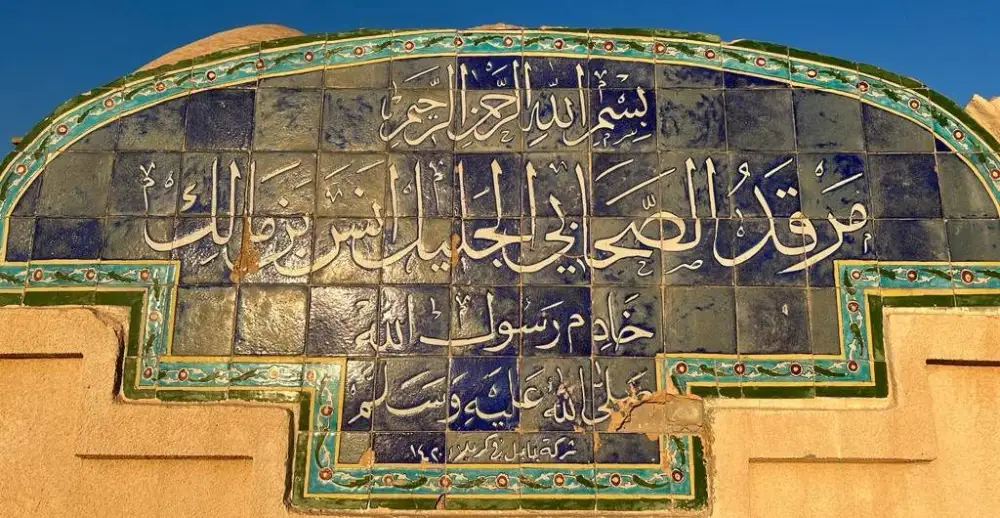 بِسْمِ اللهِ الرَّحمنِ الرَّحِيمِ
مَرقَدُ الصَّحابي الجَليل انَس بن مالِك
خَادِم رَسول الله
صَلى الله عَلَيهِ وَسَلَّم
شركة بابل ١٤٢٠